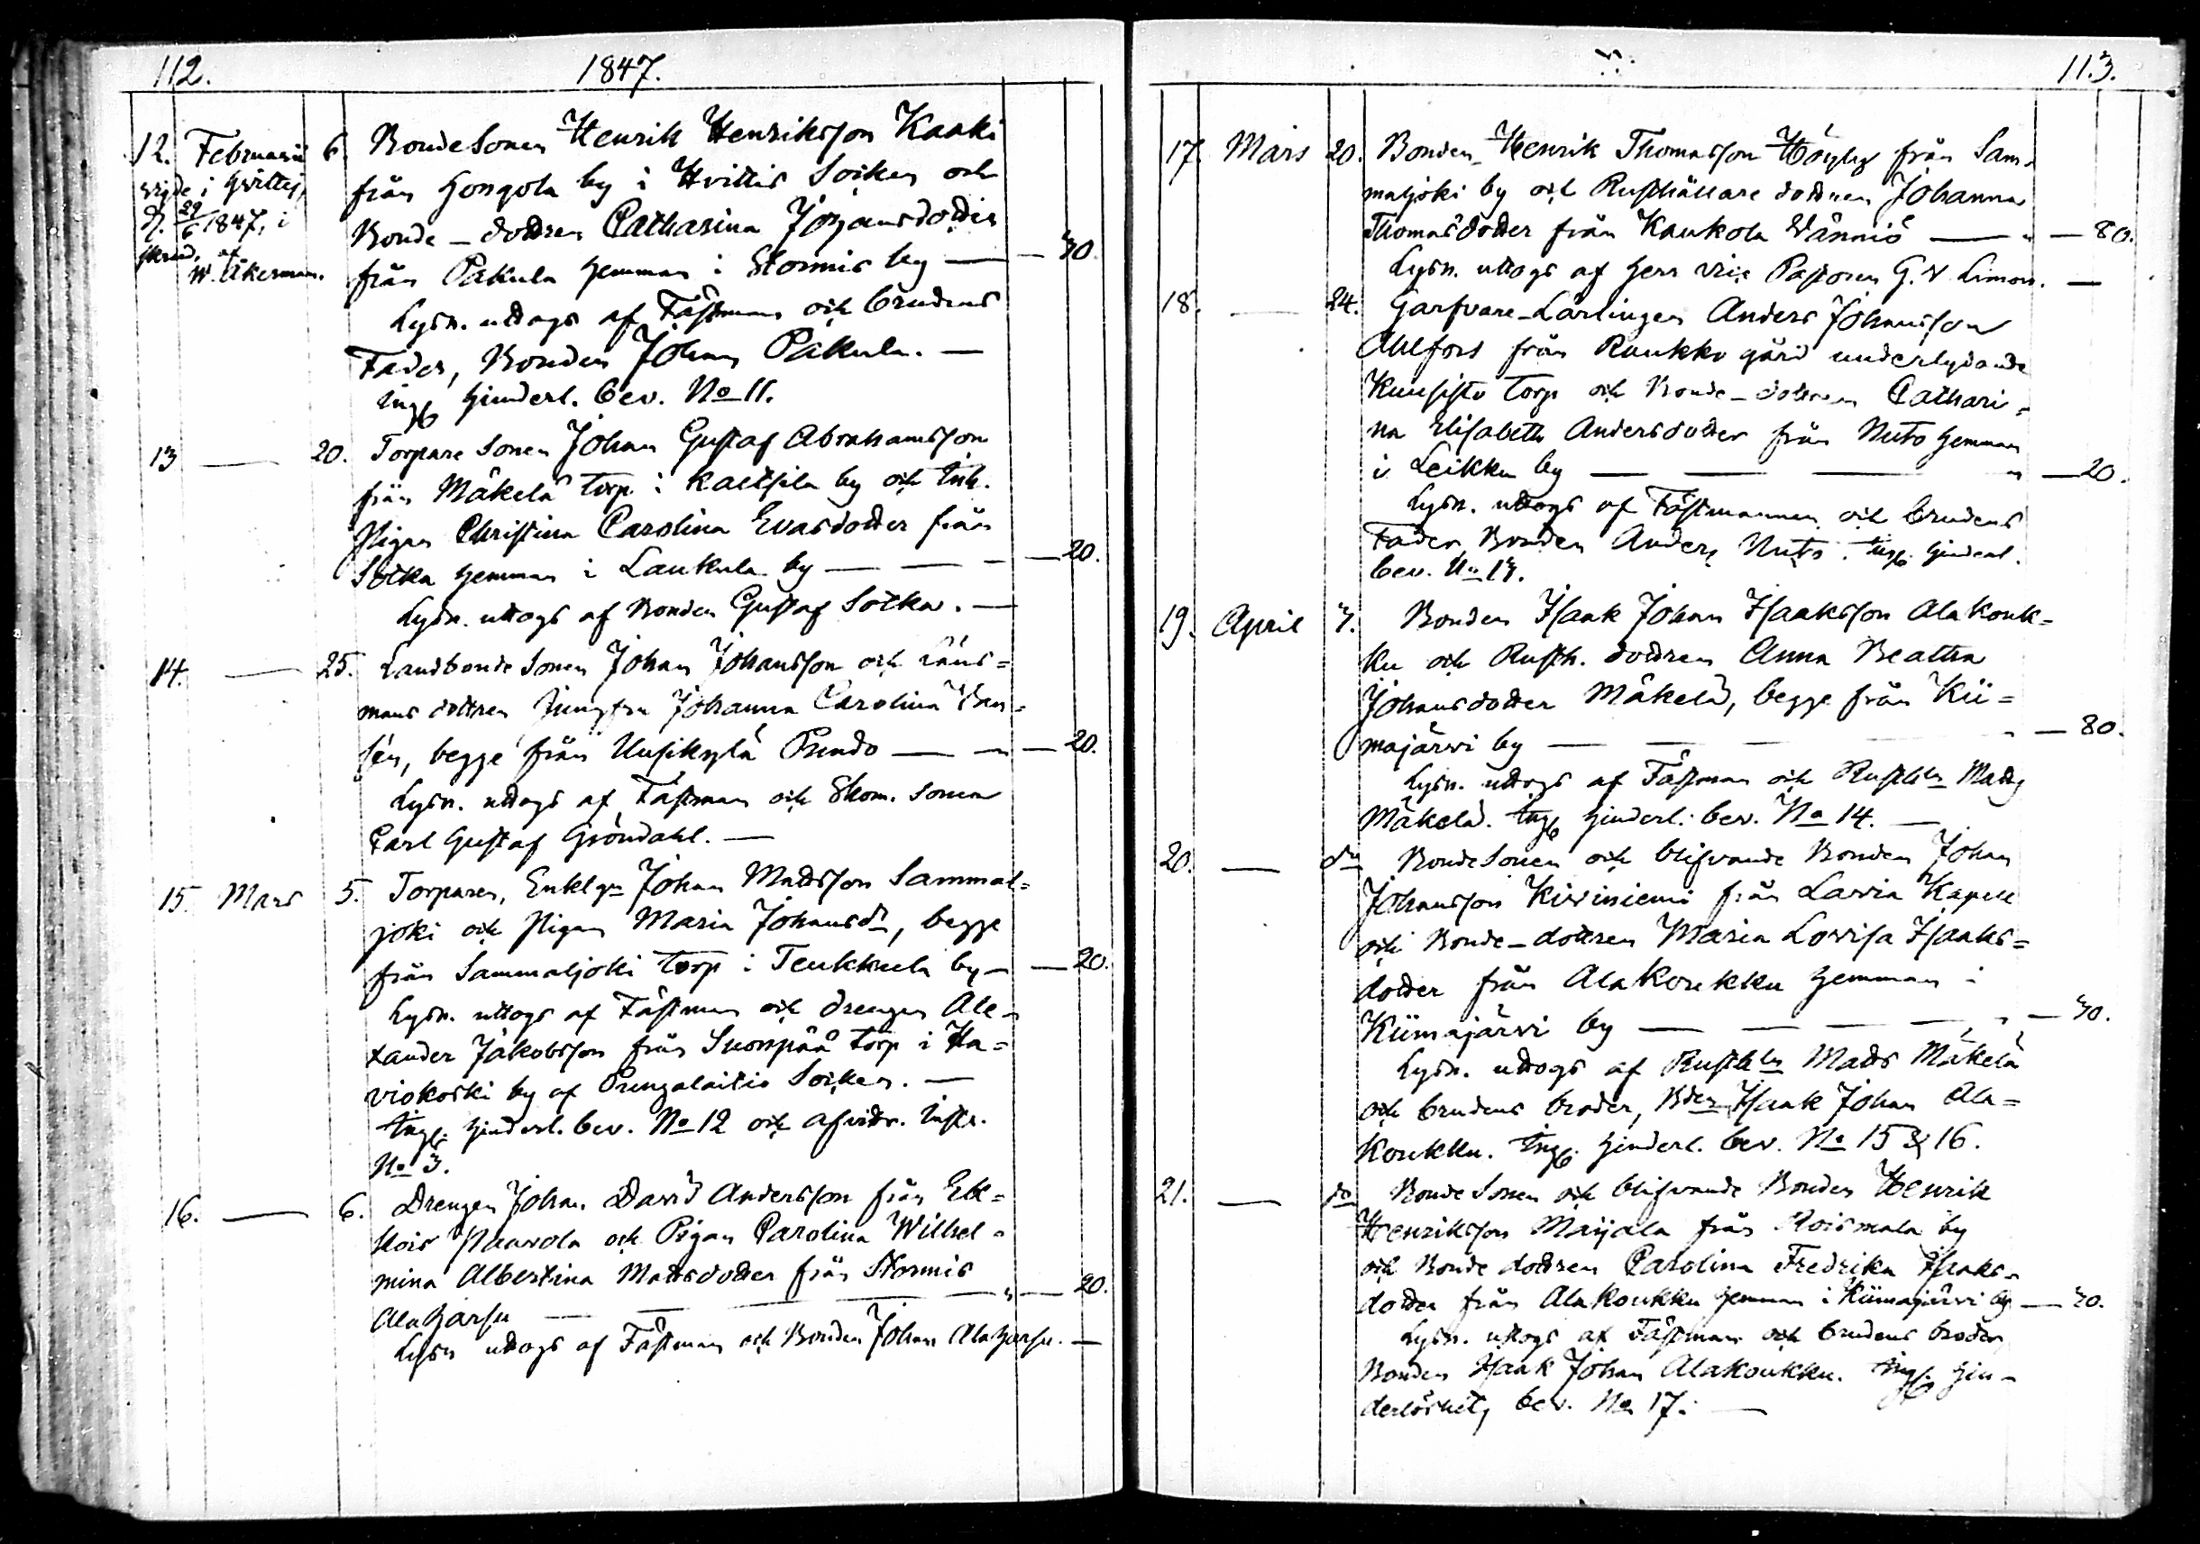 112. 1847.
12. Februarii 6. Bondesonen Henrik Henriksson Kaaki
vigde i Hvittis, från Hongola by i Hvittis Socken och
d. 29/6 1847, i Bonde-dottren Catharina Johansdotter
af från Pakula hemman i Stormis by — 30.
W. Åkerman.
Lysn. uttogs af Fästman och brudens
Fader, Bonden Johan Pakula. —
Ingf. hinderl. bev. No 11.
13 — 20. Torpare Sonen Johan Gustaf Abrahamsson
från Mäkelä torp i Kaltsila by och Inh.
Pigan Christina Carolina Evasdotter från
Sotka hemman i Laukula by — — — 20.
Lysn. uttogs af Bonden Gustaf Sotka. —
14. — 25. Landbonde Sonen Johan Johansson och Läns=
mans dottren Jungfru Johanna Carolina
sén, begge från Uusikylä Pundo — „ — 20.
Lysn. uttogs af Fästman och Skom. Sonen
Carl Gustaf Gröndahl. —
15. Mars 5. Torparen, Enklgn Johan Mattsson Sammal=
joki och Pigan Maria Johansdr, begge
från Sammaljoki torp i Teukkula by — — 20.
Lysn. uttogs af Fästman och drengen Ale=
xander Jakobsson från Suonpää torp i Ha=
viokoski by af Pungalaitio Socken. —
Ingf. hinderl. bev. No 12 och afvittr. Instr.
No 3.
16. — 6. Drengen Johan David Andersson från Ek=
kois Paavola och Pigan Carolina Wilhel=
mina Albertina Mattsdotter från Stormis
Alaharsu — — — „ — 20.
Lysn uttogs af Fästman och Bonden Johan Alaharsu. —
113.
17. Mars 20. Bonden Henrik Thomasson från Sam=
maljoki by och Rusthållare dottren Johanna
Thomasdotter från Kaukola Wänniö — „ — 80.
Lysn. uttogs af Herr Vice Pastoren G. V. Limon. —
18. — 24. Garfvare-Lärlingen Anders Johansson
Ahlfors från Raukko gård underlydande
Kuusisto torp och Bonde-dottren Cathari=
na Elisabeth Andersdotter från Nuto hemman
i Leikku by — — — „ — 20.
Lysn. uttogs af Fästmannen och brudens
Fader, Bonden Anders Nuto. Ingf. hinderl.
bev. No 13.
19. April 3. Bonden Isaak Johan Isaaksson Alakouk=
ku och Rusth. dottren Anna Beatha
Johansdotter Mäkelä, begge från Kii=
majärvi by — — — „ — 80.
Lysn. uttogs af Fästman och Rusthln Matts
Mäkelä. Ingf. hinderl. bev. No 14. —
20. — do Bondesonen och blifvande Bonden Johan
Johansson Kiviniemi från Lavia Kapell
och Bonde-dottren Maria Lovisa Isaaks=
dotter från Alakoukku hemman i
Kiimajärvi by — — — „ — 30.
Lysn. uttogs af Rusthln Matts Mäkelä
och brudens broder, Bden Isaak Johan Ala=
koukku. Ingf. hinderl. bev. No 15 & 16.
21. — do Bonde Sonen och blifvande Bonden Henrik
Henriksson Maijala från Roismala by
och Bonde dottren Carolina Fredrika Isaaks=
dotter från Alakoukku hemman i Kiimajärvi by — 30.
Lysn. uttogs af Fästman och brudens broder
Bonden Isaak Johan Alakoukku. Ingf. hin=
derlöshets bev. No 17. —